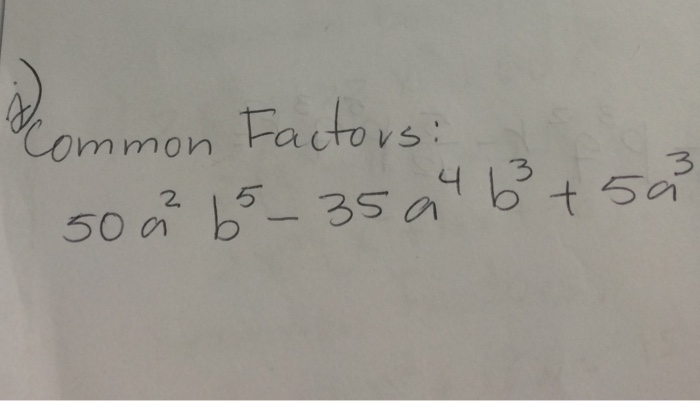 i)
Common Factors:
50a² b⁵ - 35a⁴ b³ + 5a³